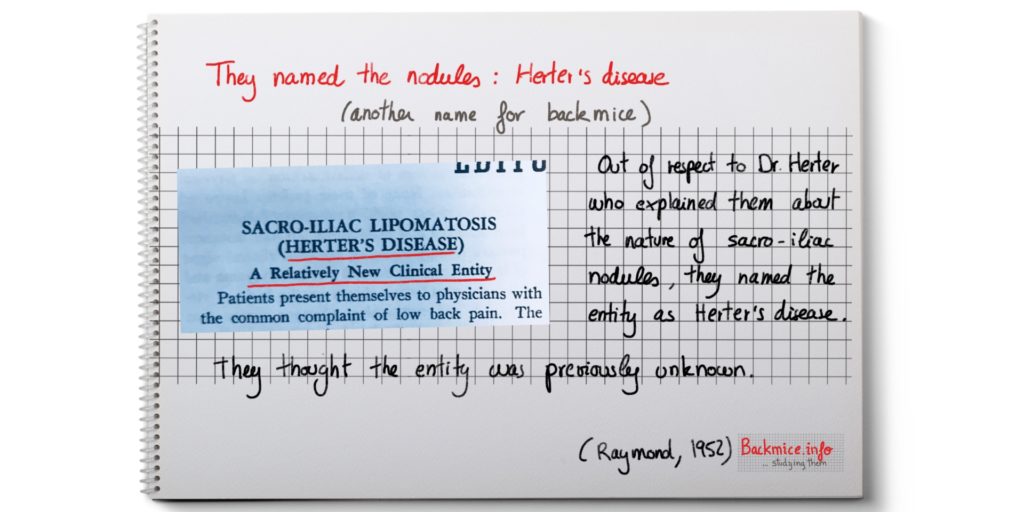 They named the nodules : Herter's disease
(another name for backmice)
SACRO-ILIAC LIPOMATOSIS
(HERTER'S DISEASE)
A Relatively New Clinical Entity
Patients present themselves to physicians with
the common complaint of low back pain. The
Out of respect to Dr. Herter
who explained them about
the nature of sacro-iliac
nodules, they named the
entity as Herter's disease.
They thought the entity was previously unknown.
(Raymond, 1952)
Backmice.info
... studying them